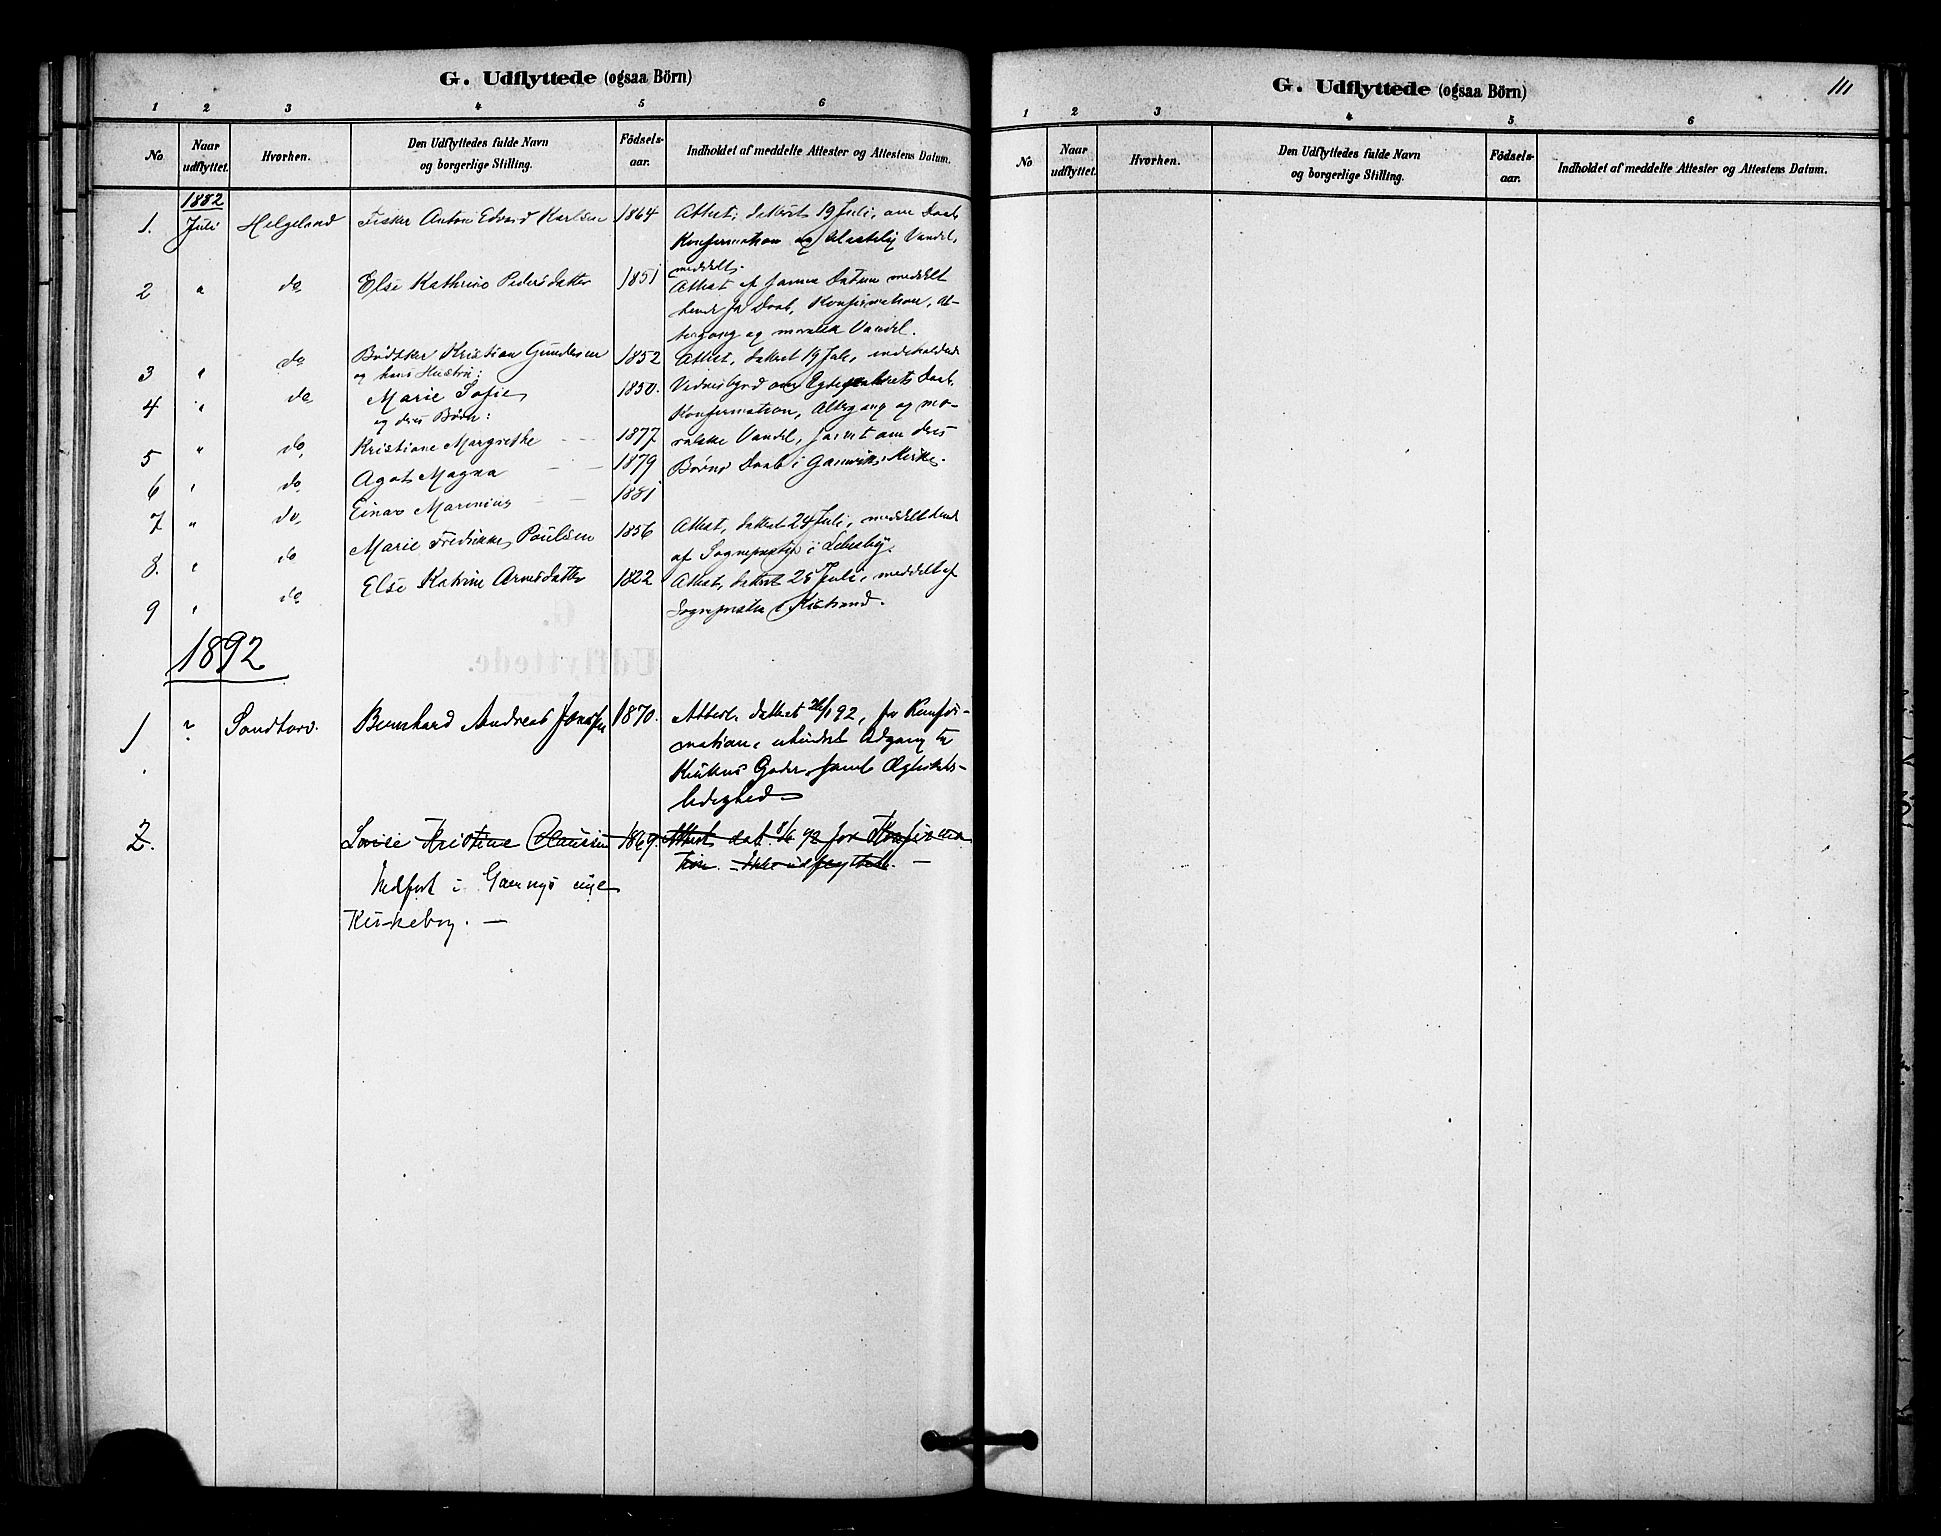 G. Udflyttede (ogsaa Börn)
1 2 3 4 5 6
No. Naar udflyttet. Hvorhen. Den Udflyttedes fulde Navn og borgerlige Stilling. Födsels-aar. Indholdet af meddelte Attester og Attestens Datum.
1882
1. Juli Helgeland Fisker Anton Edvard Karlsen 1864 Attest, dateret 19 Juli, om Daab
Konfirmation og Vandel,
meddelt.
2 " do Else Kathrine Pedersdatter 1851 Attest af samme Datum meddelt
hende for Daab, Konfirmation, Al-
tergang og moralsk Vandel.
3 " do Bödker Kristian Gundersen 1852 Attest, dateret 19 Juli, indeholdende
og hans Hustru:
4 " do Marie Sofie 1850. Vidnesbyrd om Egteparrets Daab,
og deres Börn:
Konfirmation, Altergang og mo-
5 " do Kristiane Margrethe 1877 ralske Vandel, samt om deres
6 " do Agot Magna 1879 Börns Daab i Gamviks Kirke.
7 " do Einar Marenius 1881
8. " do Marie Fredrikke Poulsen 1856 Attest, dateret 24 Juli, meddelt hende
af Sognepresten i Lebesby.
9 " do Else Katrine Arnesdatter 1822 Attest, dateret 25 Juli, meddelt af
Sognepresten i Kistrand.
1892
1 " Sandtorv. Bernhard Andreas 1870. Attest dateret 26/1 92, for Konfir-
mation, uhindret Adgang til
Kirkens Goder samt Ægteskabs-
ledighed
2. Lovise Kristine Claussen 1869. Attest dat. 92 for Konfirma
tion. – Ikke udflyttede. –
Indfört i Gamviks nye
Kirkebog. –
G. Udflyttede (ogsaa Börn)
111
1 2 3 4 5 6
No Naar udflyttet. Hvorhen. Den Udflyttedes fulde Navn og borgerlige Stilling. Födsels-aar. Indholdet af meddelte Attester og Attestens Datum.